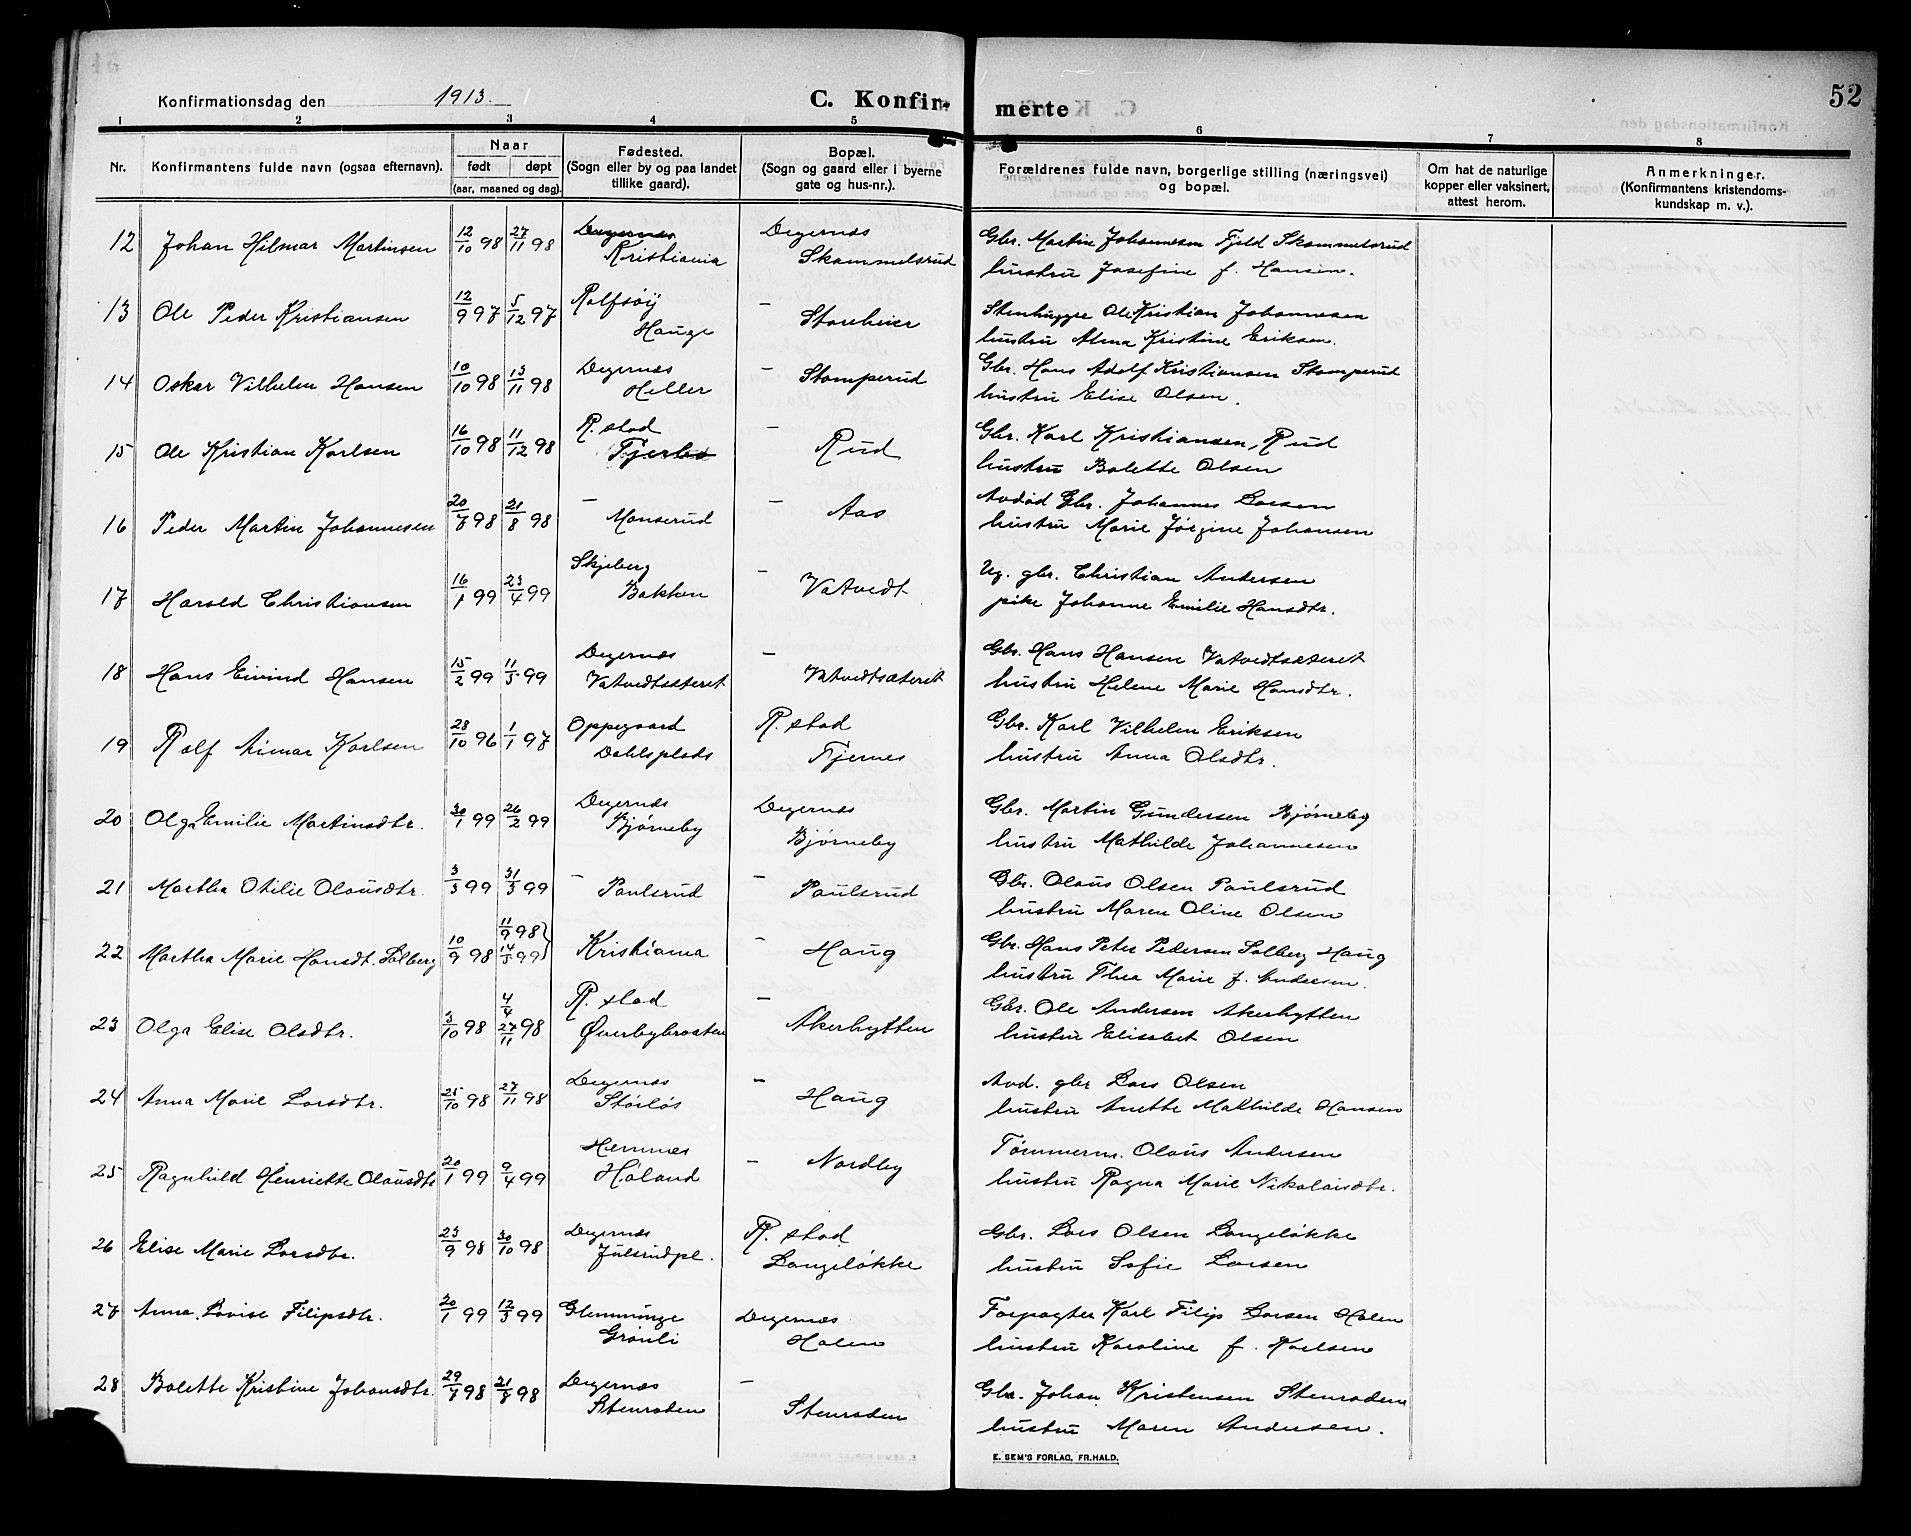 52
Konfirmationsdag den 1913.
C. Konfir- merte
1 2 3 4 5 6 7 8
Nr.
Konfirmantens fulde navn (ogsaa efternavn).
Naar
født døpt
(aar, maaned og dag).
Fødested.
(Sogn eller by og paa landet
tillike gaard).
Bopæl.
(Sogn og gaard eller i byerne
gate og hus-nr.).
Forældrenes fulde navn, borgerlige stilling (næringsvei)
og bopæl.
Om hat de naturlige
kopper eller vaksinert,
attest herom.
Anmerkninger.
(Konfirmantens kristendoms-
kundskap m. v.).
12 Johan Hilmar Martinsen 12/10 98 27/11 98 Degernæs Kristiania Degernæs Skammelsrud
Gbr. Martin Johannesen Fjeld Skammelsrud
hustru Josefine f. Hansen.
13 Ole Peder Kristiansen 12/9 97 5/12 97 Rolfsøy Hauge — Storeheier
Stenhugger Ole Kristian Johannesen
hustru Alma Kristine Eriksen.
14 Oskar Vilhelm Hansen 10/10 98 13/11 98 Degernæs Heller — Stomperud
Gbr. Hans Adolf Kristiansen Stomperud
hustru Elise Olsen.
15 Ole Kristian Karlsen 16/10 98 11/12 98 R. stad Tjerbo — Rud
Gbr. Karl Kristiansen, Rud
hustru Bolette Olsen
16 Peder Martin Johannesen 20/7 98 21/8 98 — Monserud — Aas
Avdød Gbr. Johannes Larsen
hustru Marie Jørgine Johansen
17 Harald Christiansen 16/1 99 23/4 99 Skjeberg Bakken — Vatvedt
Ug. gbr. Christian Andersen
pike Johanne Emilie Hansdtr.
18 Hans Eivind Hansen 15/2 99 11/5 99 Degernæs Vatvedtsæteret — Vatvedtsæteret
Gbr. Hans Hansen Vatvedtsæteret
hustru Helene Marie Hansdtr.
19 Rolf Aimar Karlsen 28/10 96 1/1 97 Oppegaard Dahlsplads R. stad Tjernes
Gbr. Karl Vilhelm Eriksen
hustru Anna Olsdtr.
20 Olga Emilie Martinsdtr. 30/1 99 26/2 99 Degernæs Bjørneby Degernæs Bjørneby
Gbr. Martin Gundersen Bjørneby
hustru Mathilde Johannesen
21 Martha Otilie Olausdtr. 3/3 99 31/3 99 — Paulsrud — Paulsrud
Gbr. Olaus Olsen Paulsrud
hustru Maren Oline Olsen
22 Martha Marie Hansdt. Solberg 10/9 98 11/9 98 14/5 99 Kristiania — Haug
Gbr. Hans Peter Pedersen Solberg Haug
hustru Thea Marie f. Andersen.
23 Olga Elise Olsdtr. 3/10 98 4/4 27/11 98 R. stad Øverbybraaten — Akerhytten
Gbr. Ole Andersen Akerhytten
hustru Elisabet Olsen
24 Anna Marie Larsdtr. 25/10 98 27/11 98 Degernæs Størløs — Haug
Avd. gbr Lars Olsen
hustru Anette Mathilde Hansen
25 Ragnhild Henriette Olausdtr 20/1 99 9/4 99 Hemnæs Høland — Nordby
Tømmerm. Olaus Andersen
hustru Ragna Marie Nikolaisdtr.
26 Elise Marie Larsdtr. 23/9 98 30/10 98 Degernæs Julsrudpl. R. stad Langeløkke
Gbr. Lars Olsen Langeløkke
hustru Sofie Larsen
27 Anna Lovise Filipsdtr. 20/1 99 12/3 99 Glemminge Grønli Degernæs Holen
Forpagter Karl Filip Larsen Holen
hustru Karoline f. Karlsen
28 Bolette Kristine Johansdtr. 29/7 98 21/8 98 Degernæs Stenroden — Stenroden
Gbr. Johan Kristensen Stenroden
hustru Maren Andersen.
E. SEM'S FORLAG, FR.HALD.